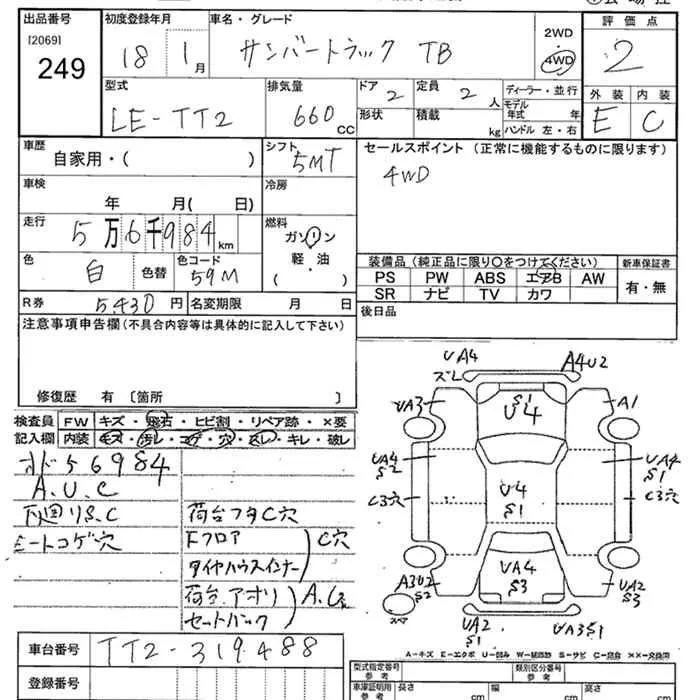 出品番号 初度登録年月 車名・グレード 評価点
[2069]
249
18 1月 サンバートラック TB 2WD 4WD 2
型式 排気量 ドア 2 定員 2人 ディーラー・並行 外装 内装
LE-TT2 660cc 形状 積載 kg モデル年式 年 E C
ハンドル 左・右
車歴 シフト セールスポイント (正常に機能するものに限ります)
自家用・( ) 5MT 4WD
車検 冷房
年 月( 日)
走行 燃料
5万6千984km ガソリン
軽・油
( )
色 白 色替 色コード 59M
装備品 (純正品に限り○をつけてください) 新車保証書
PS PW ABS エアB AW 有・無
SR ナビ TV カワ
R券 5,430円 名変期限 月 日 後日品
注意事項申告欄 (不具合内容等は具体的に記入して下さい)
修復歴 有 〔箇所 〕
検査員 FW キズ・飛石・ヒビ割・リペア跡・×要
記入欄 内装 キズ・汚レ・コゲ・穴・スレ・キレ・破レ
オド56984
A.U.C
下廻りS.C 荷台フタC穴
シートコゲ穴 Fフロア C穴
タイヤハウスインナー
荷台アオリ
セットバック
UA4 A4U2
ズレ
UA3 S1 A1
U4
UA4 UA4
S2 S1
C3穴 U4 C3穴
S1
A3U2 UA4 UA2
S2 S3 S3
スペア
UA2 UA3S1
S1
車台番号 TT2-319488
A-キズ E-エクボ U-凹み W-補修跡 S-サビ C-腐食 ××-交換用
登録番号
型式指定番号 参考 類別区分番号 参考
車庫証明用 参考 長さ cm 幅 cm 高さ cm